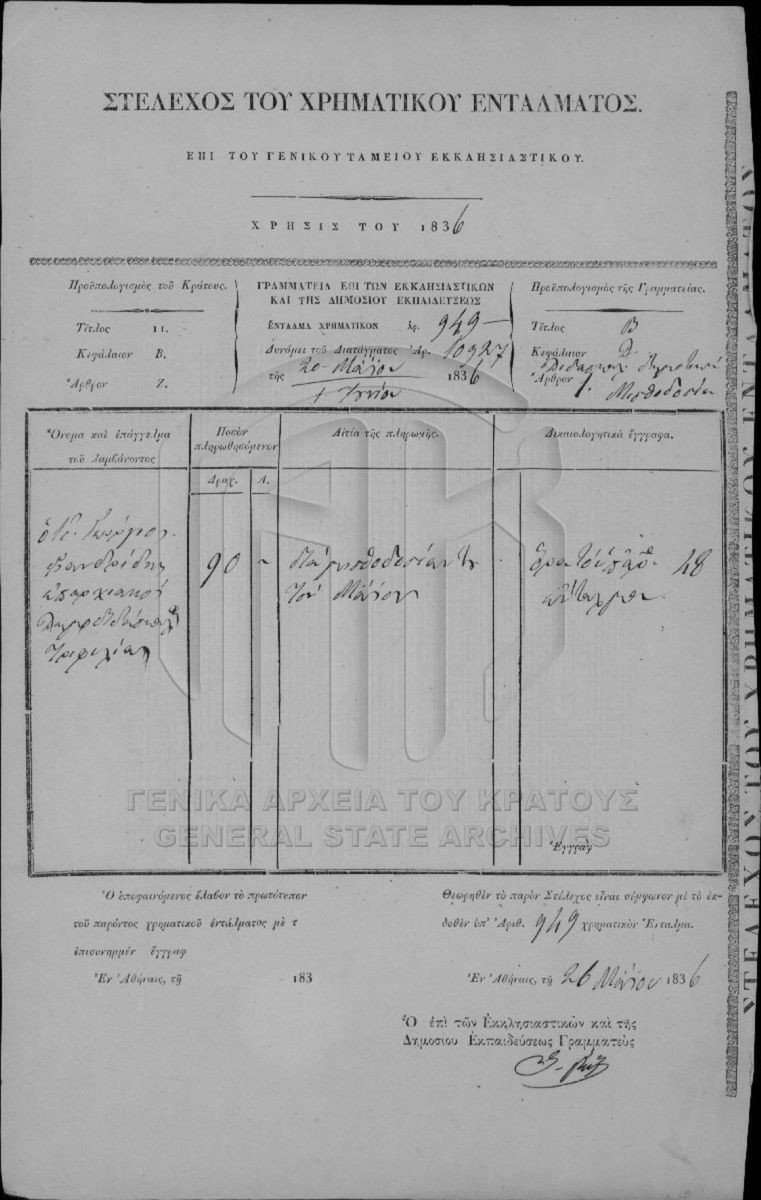 ΣΤΕΛΕΧΟΣ ΤΟΥ ΧΡΗΜΑΤΙΚΟΥ ΕΝΤΑΛΜΑΤΟΣ.
ΕΠΙ ΤΟΥ ΓΕΝΙΚΟΥ ΤΑΜΕΙΟΥ ΕΚΚΛΗΣΙΑΣΤΙΚΟΥ.
ΧΡΗΣΙΣ ΤΟΥ 1836
Προϋπολογισμὸς τοῦ Κράτους.
Τίτλος II.
Κεφάλαιον Β.
Ἄρθρον Ζ.
ΓΡΑΜΜΑΤΕΙΑ ΕΠΙ ΤΩΝ ΕΚΚΛΗΣΙΑΣΤΙΚΩΝ
ΚΑΙ ΤΗΣ ΔΗΜΟΣΙΟΥ ΕΚΠΑΙΔΕΥΣΕΩΣ
ΕΝΤΑΛΜΑ ΧΡΗΜΑΤΙΚΟΝ Ἀρ. 949
Δυνάμει τοῦ Διατάγματος Ἀρ. 10927
τῆς 20 Μαΐου 1836
1 Ἰουνίου
Προϋπολογισμὸς τῆς Γραμματείας.
Τίτλος Β
Κεφάλαιον Δ.
Ἄρθρον 1.
Μισθοδοσία
Ὄνομα καὶ ἐπάγγελμα
τοῦ λαμβάνοντος
Ποσὸν
πληρωθησόμενον
Δραχ. Λ.
Αἰτία τῆς πληρωμῆς.
Δικαιολογητικὰ ἔγγραφα.
90
μισθοδοσίαν
τοῦ Μαΐου
48
Ἐγγραφ
ΓΕΝΙΚΑ ΑΡΧΕΙΑ ΤΟΥ ΚΡΑΤΟΥΣ
GENERAL STATE ARCHIVES
Ὁ ὑποφαινόμενος ἔλαβον τὸ πρωτότυπον
τοῦ παρόντος χρηματικοῦ ἐντάλματος μὲ τ
ἐπισυνημμέν ἔγγραφ
Ἐν Ἀθήναις, τῇ 183
Θεωρηθὲν τὸ παρὸν Στέλεχος εἶναι σύμφωνον μὲ τὸ ἐκ-
δοθὲν ὑπ' Ἀριθ. 949 χρηματικὸν Ἔνταλμα.
Ἐν Ἀθήναις, τῇ 26 Μαΐου 1836
Ὁ ἐπὶ τῶν Ἐκκλησιαστικῶν καὶ τῆς
Δημοσίου Ἐκπαιδεύσεως Γραμματεὺς